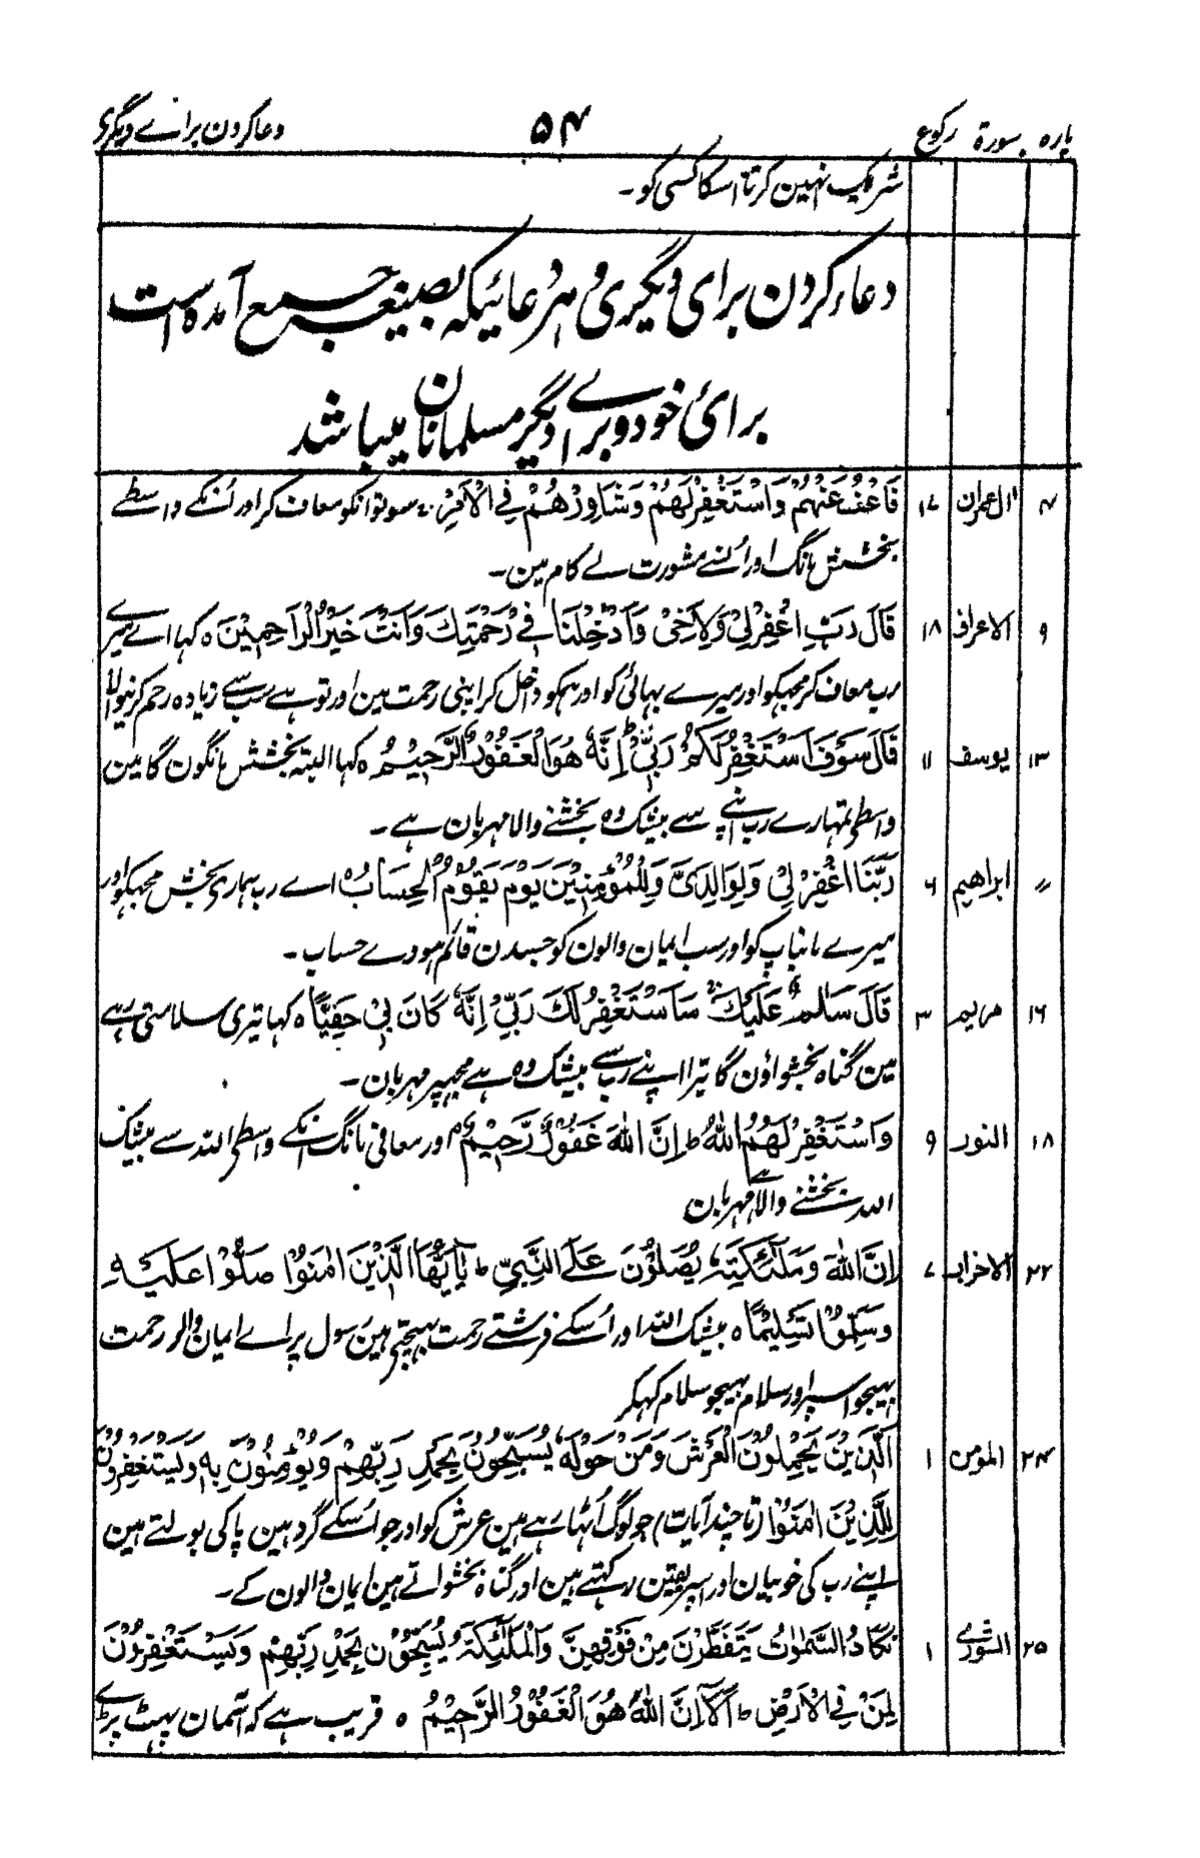 پاره سورة رکوع ۵۴ دعا کردن براے دیگری
شریک نہین کرتا اسکا کسی کو۔
دعاء کردن برای دیگری و هر دعائیکه بصیغهٔ جمع آمده است
برائ خود و براے دیگر مسلمانان میباشد
۴ ال عمران ۱۷ فَاعْفُ عَنْهُمْ وَاسْتَغْفِرْ لَهُمْ وَشَاوِرْهُمْ فِي الْاَمْرِ۔ سو تو انکو معاف کر اور اُنکے واسطے
بخشش مانگ اور اُنسے مشورت لے کام مین۔
۹ الاعراف ۱۸ قَالَ رَبِّ اغْفِرْ لِيْ وَلِاَخِيْ وَاَدْخِلْنَا فِيْ رَحْمَتِكَ وَاَنْتَ خَيْرُ الرَّاحِمِيْنَ ہ کہا اے میرے
رب معاف کر مجہکو اور میرے بہائی کو اور ہمکو داخل کر اپنی رحمت مین اور تو ہے سب سے زیادہ رحم کرنیوالا
۱۳ یوسف ۱۱ قَالَ سَوْفَ اَسْتَغْفِرُ لَكُمْ رَبِّيْ ط اِنَّهٗ هُوَ الْغَفُوْرُ الرَّحِيْمُ ہ کہا البتہ بخشش مانگون گا مین
واسطے تمہارے رب اپنے سے بیشک وہ بخشنے والا مہربان ہے۔
〃 ابراهیم ۶ رَبَّنَا اغْفِرْ لِيْ وَلِوَالِدَيَّ وَلِلْمُؤْمِنِيْنَ يَوْمَ يَقُوْمُ الْحِسَابُ ہ اے رب ہماری بخش مجہکو اور
میرے مانباپ کو اور سب ایمان والون کو جسدن قائم ہووے حساب۔
۱۶ مریم ۳ قَالَ سَلٰمٌ عَلَيْكَ سَاَسْتَغْفِرُ لَكَ رَبِّيْ اِنَّهٗ كَانَ بِيْ حَفِيًّا ہ کہا تیری سلامتی رہے
مین گناہ بخشواؤن گا تیرا اپنے رب سے بیشک وہ ہے مجہپر مہربان۔
۱۸ النور ۹ وَاسْتَغْفِرْ لَهُمُ اللّٰهَ ط اِنَّ اللّٰهَ غَفُوْرٌ رَّحِيْمٌ اور معافی مانگ انکے واسطے اللہ سے بیشک
اللہ بخشنے والا ہے مہربان
۲۲ الاحزاب ۷ اِنَّ اللّٰهَ وَمَلٰٓئِكَتَهٗ يُصَلُّوْنَ عَلَى النَّبِيِّ ط يٰٓاَيُّهَا الَّذِيْنَ اٰمَنُوْا صَلُّوْا عَلَيْهِ
وَسَلِّمُوْا تَسْلِيْمًا ہ بیشک اللہ اور اُسکے فرشتے رحمت بہیجتے ہین رسول پر اے ایمان والو رحمت
بہیجو اسپر اور سلام بہیجو سلام کہکر
۲۴ المومن ۱ اَلَّذِيْنَ يَحْمِلُوْنَ الْعَرْشَ وَمَنْ حَوْلَهٗ يُسَبِّحُوْنَ بِحَمْدِ رَبِّهِمْ وَيُؤْمِنُوْنَ بِهٖ وَيَسْتَغْفِرُوْنَ
لِلَّذِيْنَ اٰمَنُوْا (تا چند آیات) جو لوگ اُٹہا رہے ہین عرش کو اور جو اُسکے گرد ہین پاکی بولتے ہین
اپنے رب کی خوبیان اور اسپر یقین رکہتے ہین اور گناہ بخشواتے ہین ایمان والون کے۔
۲۵ الشورٰے ۱ تَكَادُ السَّمٰوٰتُ يَتَفَطَّرْنَ مِنْ فَوْقِهِنَّ وَالْمَلٰٓئِكَةُ يُسَبِّحُوْنَ بِحَمْدِ رَبِّهِمْ وَيَسْتَغْفِرُوْنَ
لِمَنْ فِي الْاَرْضِ ط اَلَآ اِنَّ اللّٰهَ هُوَ الْغَفُوْرُ الرَّحِيْمُ ہ قریب ہے کہ آسمان پہٹ پڑے